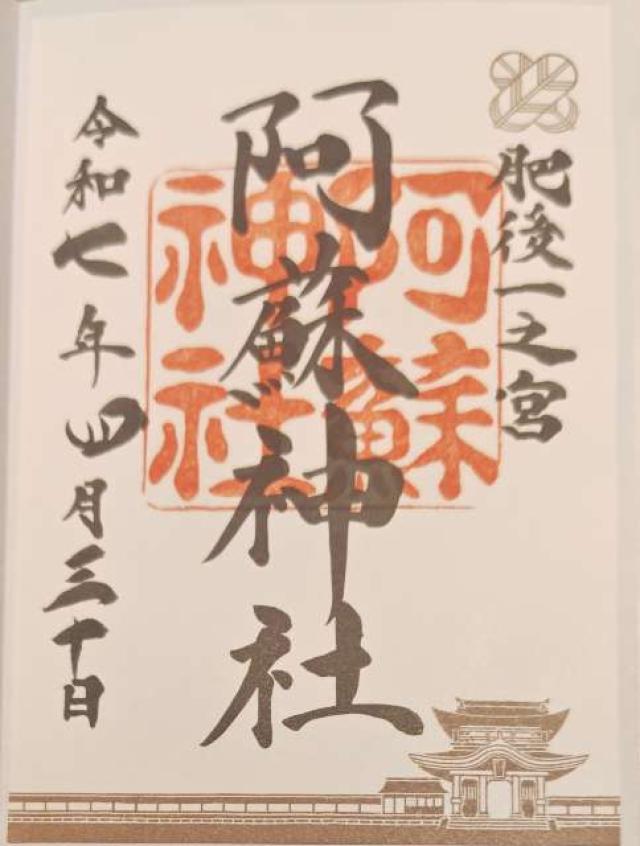 肥後一之宮
阿蘇神社
阿蘇
神社
令和七年四月三十日